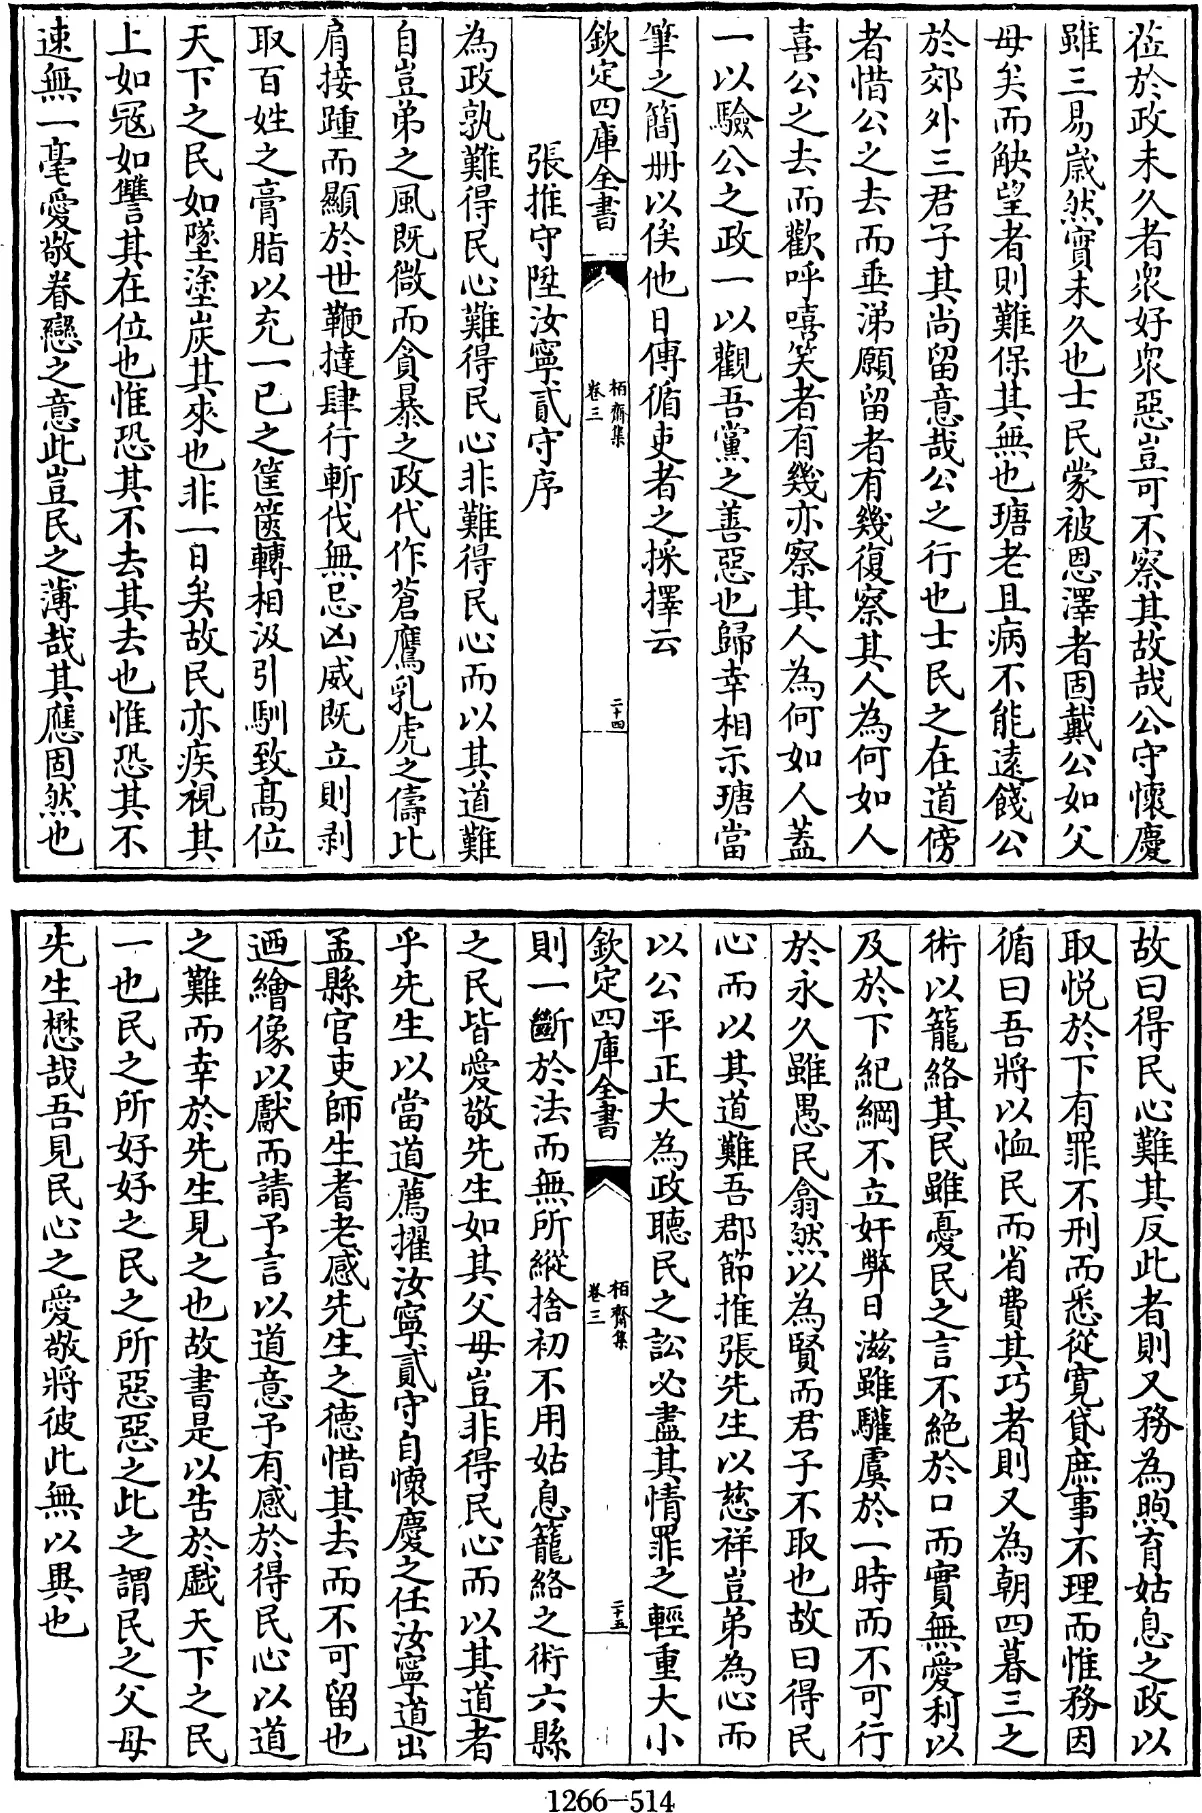 蒞於政未久者衆好衆惡豈可不察其故哉公守懷慶
雖三易歳然實未久也士民蒙被恩澤者固戴公如父
母矣而觖望者則難保其無也瑭老且病不能遠餞公
於郊外三君子其尚留意哉公之行也士民之在道傍
者惜公之去而垂涕願留者有幾復察其人為何如人
喜公之去而歡呼嘻笑者有幾亦察其人為何如人蓋
一以驗公之政一以觀吾黨之善惡也歸幸相示瑭當
筆之簡冊以俟他日傳循吏者之採擇云
欽定四庫全書
栢齋集
卷三
二十四
張推守陞汝寧貳守序
為政孰難得民心難得民心非難得民心而以其道難
自豈弟之風既微而貪暴之政代作蒼鷹乳虎之儔比
肩接踵而顯於世鞭撻肆行斬伐無忌凶威既立則剥
取百姓之膏脂以充一己之筐篋轉相汲引馴致髙位
天下之民如墜塗炭其來也非一日矣故民亦疾視其
上如寇如讐其在位也惟恐其不去其去也惟恐其不
速無一毫愛敬眷戀之意此豈民之薄哉其應固然也
故曰得民心難其反此者則又務為煦育姑息之政以
取悦於下有罪不刑而悉從寛貸庶事不理而惟務因
循曰吾將以恤民而省費其巧者則又為朝四暮三之
術以籠絡其民雖憂民之言不絶於口而實無愛利以
及於下紀綱不立奸弊日滋雖驩虞於一時而不可行
於永久雖愚民翕然以為賢而君子不取也故曰得民
心而以其道難吾郡節推張先生以慈祥豈弟為心而
以公平正大為政聽民之訟必盡其情罪之輕重大小
欽定四庫全書
栢齋集
卷三
二十五
則一斷於法而無所縱捨初不用姑息籠絡之術六縣
之民皆愛敬先生如其父母豈非得民心而以其道者
乎先生以當道薦擢汝寧貳守自懷慶之任汝寧道出
孟縣官吏師生耆老感先生之德惜其去而不可留也
迺繪像以獻而請予言以道意予有感於得民心以道
之難而幸於先生見之也故書是以告於戯天下之民
一也民之所好好之民之所惡惡之此之謂民之父母
先生懋哉吾見民心之愛敬將彼此無以異也
1266—514